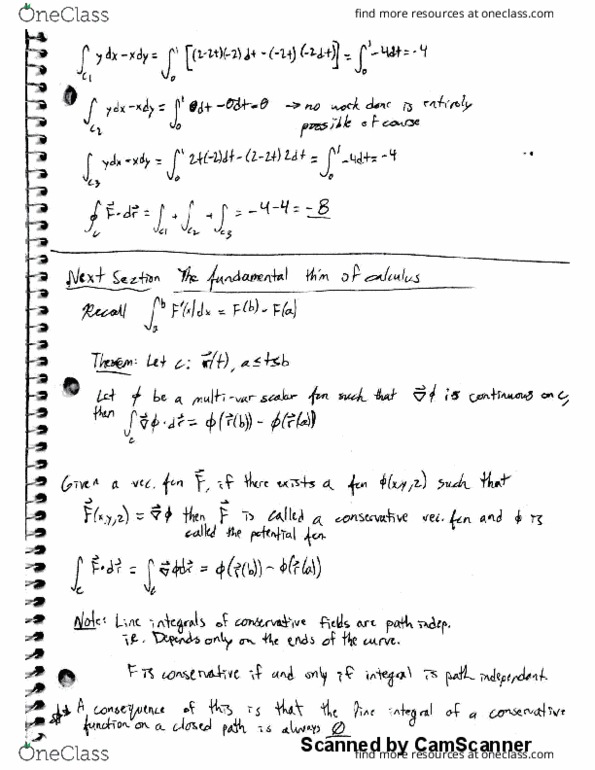 OneClass find more resources at oneclass.com
∫_{c1} ydx-xdy = ∫_0^1 [(2-2t)(-2)dt-(-2t)(-2dt)] = ∫_0^1 -4dt = -4
∫_{c2} ydx-xdy = ∫_0^1 0dt-0dt=0 → no work done is entirely
possible of course
∫_{c3} ydx-xdy = ∫_0^1 2t(-2)dt-(2-2t)2dt = ∫_0^1 -4dt=-4
∮_c F⃗·dr⃗ = ∫_{c1} + ∫_{c2} + ∫_{c3} = -4-4=-8
Next Section The fundamental thm of calculus
Recall ∫_a^b F'(x)dx = F(b)-F(a)
Theorem: Let c: r⃗(t), a≤t≤b
Let ϕ be a multi-var scalar fcn such that ∇⃗ϕ is continuous on c,
then ∫_c ∇⃗ϕ·dr⃗ = ϕ(r⃗(b))-ϕ(r⃗(a))
Given a vec. fcn F⃗, if there exists a fcn ϕ(x,y,z) such that
F⃗(x,y,z) = ∇⃗ϕ then F⃗ is called a conservative vec. fcn and ϕ is
called the potential fcn
∫_c F⃗·dr⃗ = ∫_c ∇⃗ϕdr⃗ = ϕ(r⃗(b))-ϕ(r⃗(a))
Note: Line integrals of conservative fields are path indep.
i.e. Depends only on the ends of the curve.
F is conservative if and only if integral is path independant
A consequence of this is that the line integral of a conservative
function on a closed path is always 0
Scanned by CamScanner
OneClass find more resources at oneclass.com